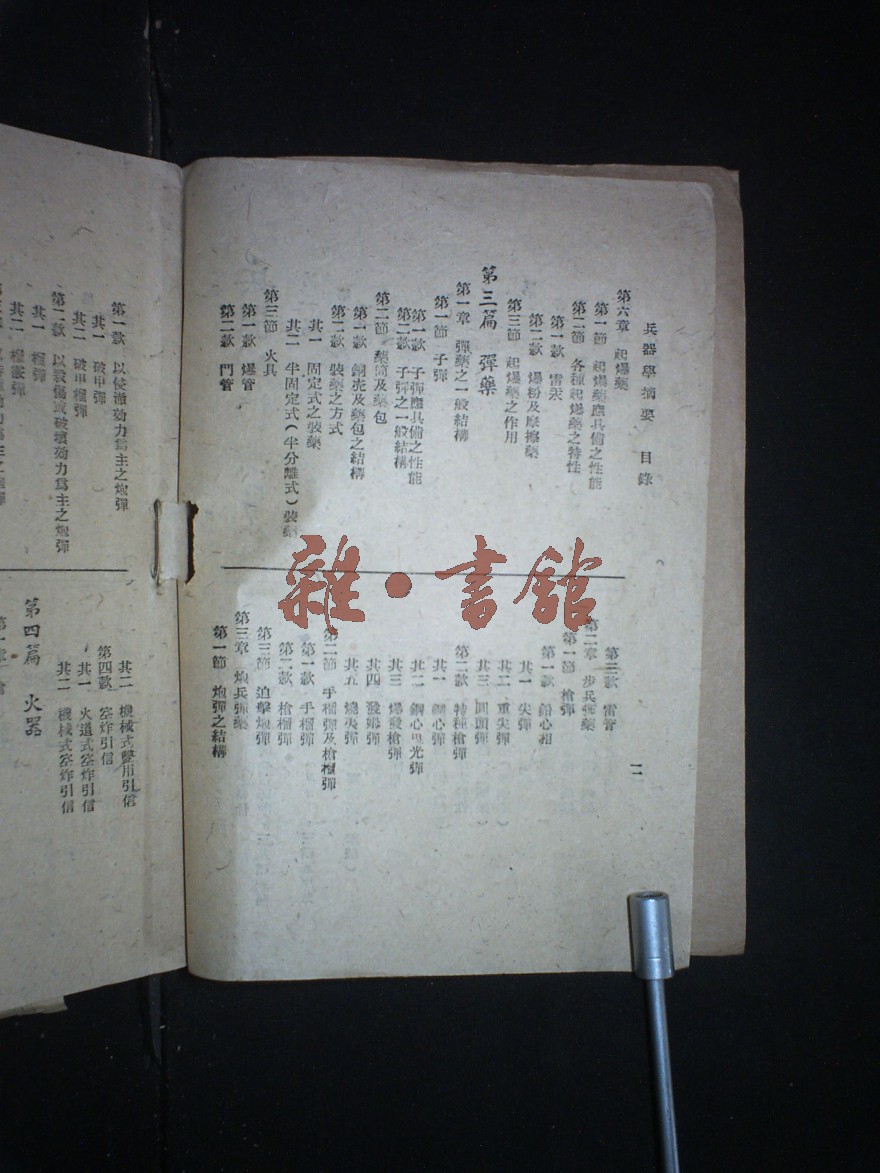 兵器學摘要　目錄
第六章　起爆藥
第一節　起爆藥應具備之性能
第二節　各種起爆藥之特性
第一款　雷汞
第二款　爆粉及摩擦藥
第三節　起爆藥之作用
第三篇　彈藥
第一章　彈藥之一般結構
第一節　子彈
第一款　子彈應具備之性能
第二款　子彈之一般結構
第二節　藥筒及藥包
第一款　銅壳及藥包之結構
第二款　裝藥之方式
其一　固定式之裝藥
其二　半固定式(半分離式)裝藥
第三節　火具
第一款　爆管
第二款　門管
二
第三款　雷管
第二章　步兵彈藥
第一節　槍彈
第一款　鉛心
其一　尖彈
其二　重尖彈
其三　圓頭彈
第二款　特種槍彈
其一　鋼心彈
其二　鋼心曳光彈
其三　爆發槍彈
其四　發煙彈
其五　燒夷彈
第二節　手榴彈及槍榴彈
第一款　手榴彈
第二款　槍榴彈
第三節　迫擊炮彈
第三章　炮兵彈藥
第一節　炮彈之結構
第一款　以侵澈効力爲主之炮彈
其一　破甲彈
其二　破甲榴彈
第二款　以殺傷或破壞効力爲主之炮彈
其一　榴彈
其二　榴霰彈
其二　機械式雙用引信
第四款　空炸引信
其一　火道式空炸引信
其二　機械式空炸引信
第四篇　火器
雜·書館